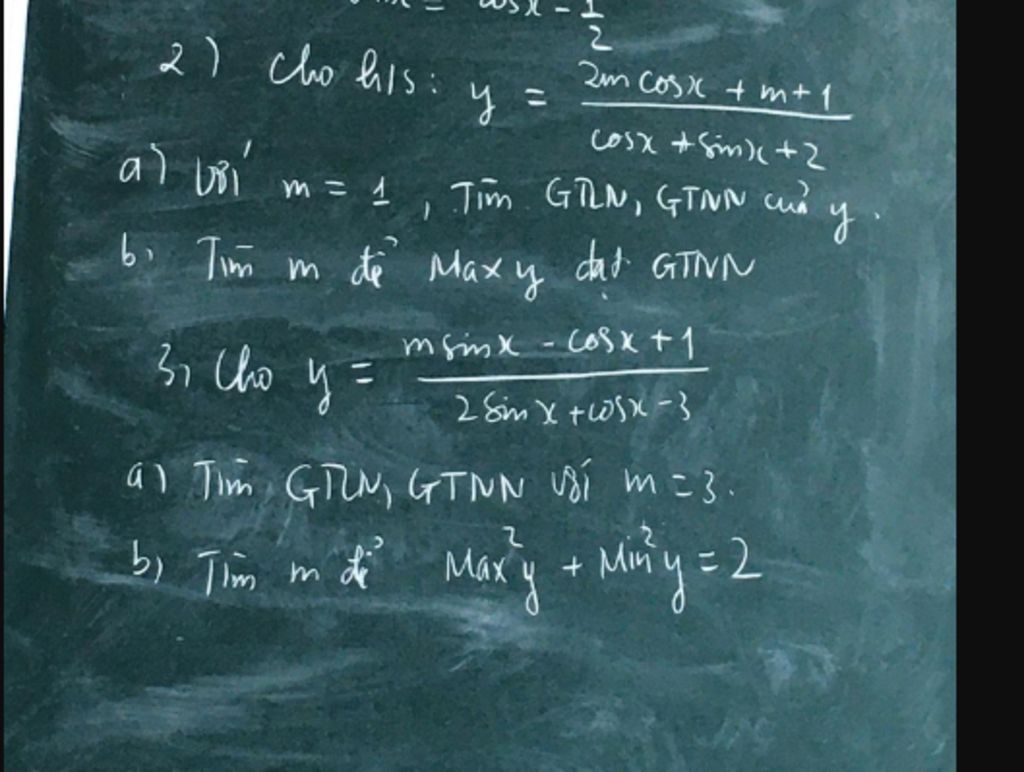 = cosx - 1/2
2) Cho h/s: y = (2m cosx + m+1)/(cosx + sinx + 2)
a) Với m = 1, Tìm GTLN, GTNN của y.
b, Tìm m để Max y đạt GTNN
3, Cho y = (m sinx - cosx + 1)/(2 sinx + cosx - 3)
a) Tìm GTLN, GTNN với m = 3.
b) Tìm m để Max²y + Min²y = 2